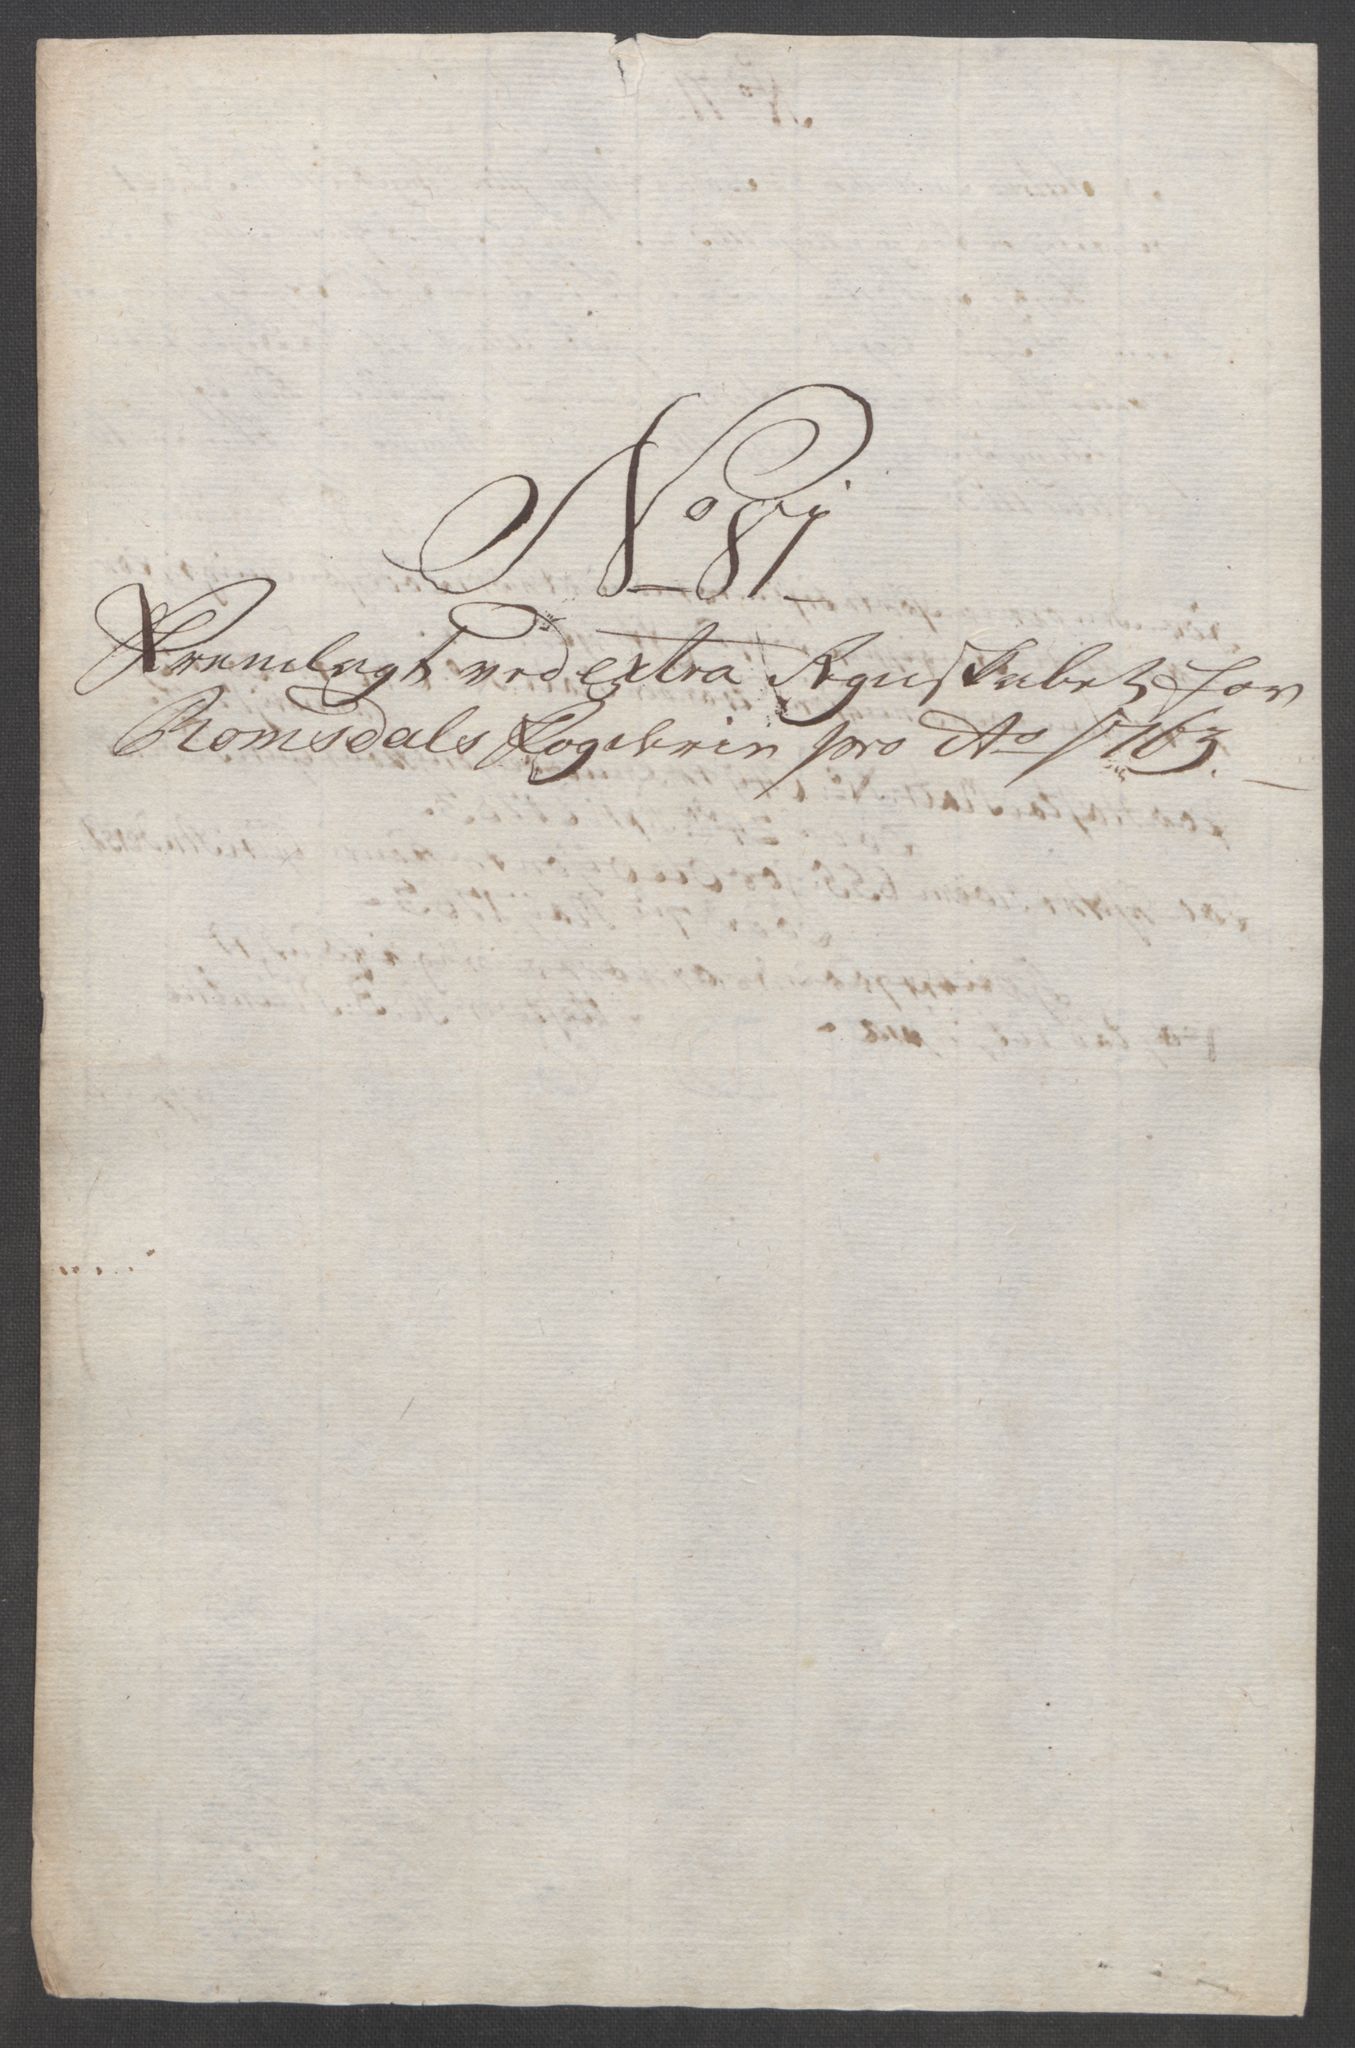 No 81
Fremlagt ved extra Regnskabet for
Romsdals Fogderie pro Ao 1763.